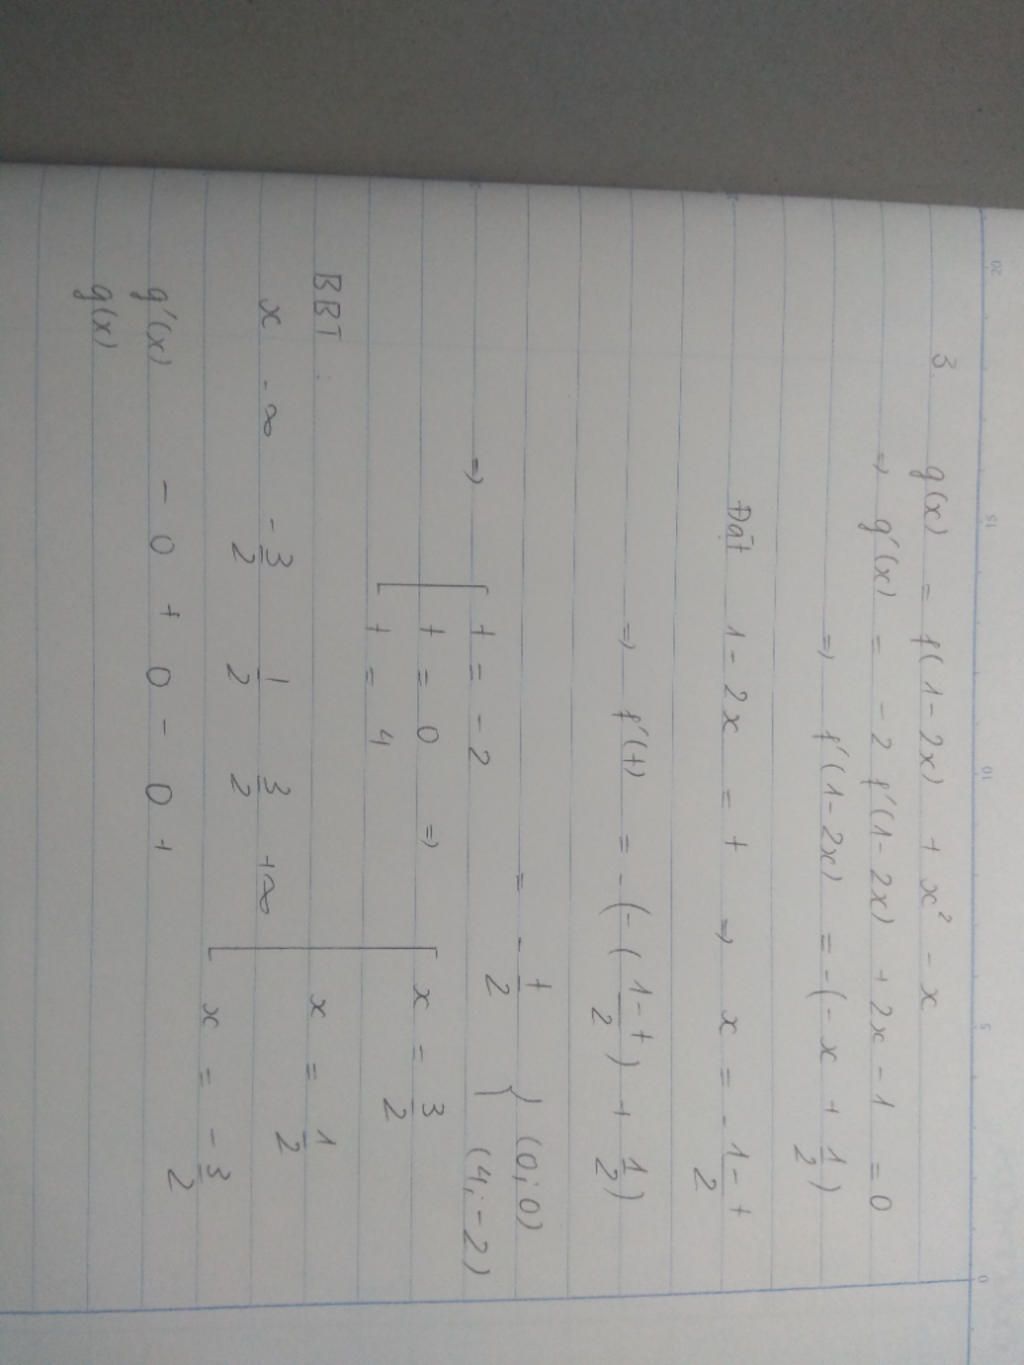 3. g(x) = f(1-2x) + x² - x
⇒ g'(x) = -2 f'(1-2x) + 2x - 1 = 0
⇒ f'(1-2x) = -(-x + 1/2)
Đặt 1-2x = t ⇒ x = -1-t/2
⇒ f'(t) = -(-(1-t/2) + 1/2)
= -t/2 } (0;0) (4;-2)
⇒ [ t = -2
t = 0 ⇒ [ x = 3/2
t = 4
x = 1/2
BBT:
x -∞ -3/2 1/2 3/2 +∞
x = -3/2
g'(x) - 0 + 0 - 0 +
g(x)
20 15 10 5 0